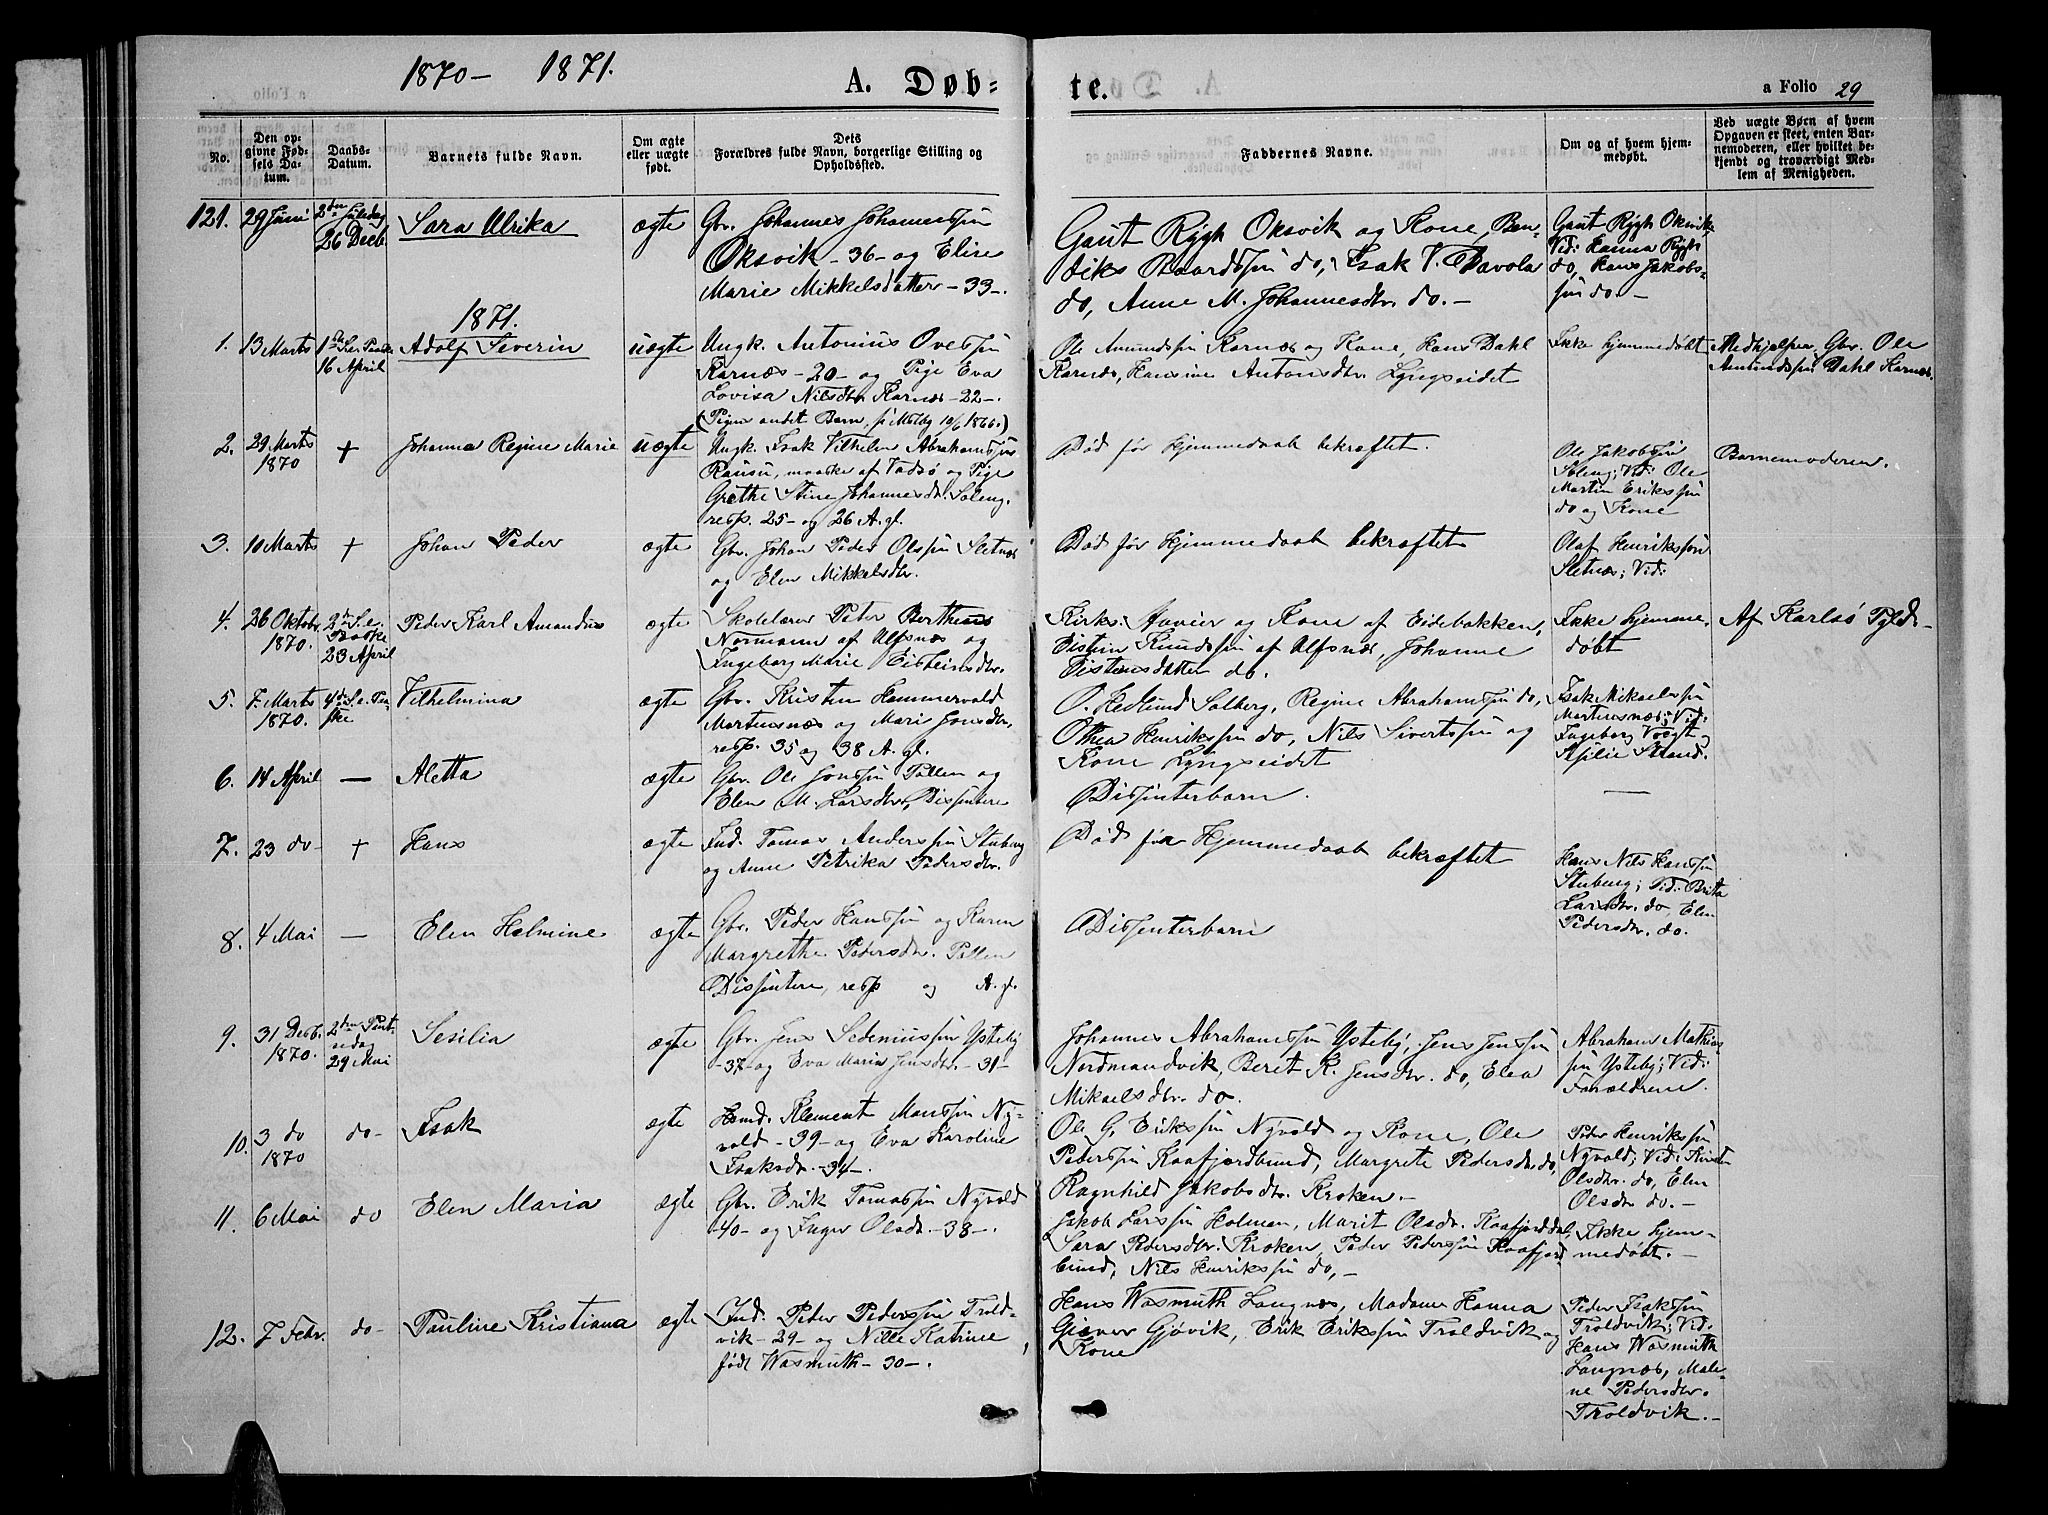 1870- 1871.
A. Døb=
te.
a Folio 29
No.
Den op=
givne Fød=
sels Da=
tum.
Daabs=
Datum.
Barnets fulde Navn.
Om ægte
eller uægte
født.
Dets
Forældres fulde Navn, borgerlige Stilling og
Opholdssted.
Faddernes Navne.
Om og af hvem hjem=
medøbt.
Ved uægte Børn af hvem
Opgaven er skeet, enten Bar=
nemoderen, eller hvilket be=
kjendt og troværdigt Med=
lem af Menigheden.
121. 29 Juni
2den Juledag
26 Decb.
Sara Ulrika
ægte
Gbr. Johannes Johannessøn
Oksvik -36- og Elire
Marie Mikkelsdatter -33-.
Gaut Rygh Oksvik og Kone, Ben-
diks Baardssøn do, Isak V. Davola
do, Anne M. Johannesdtr. do. -
Gaut Rygh Oksvik
Vid: Hanna Rygh
do, Hans Jakobs-
søn do. -
1871.
1. 13 Marts
16 April
Adolf Severin
uægte
Ungk. Antonius Ovessøn
Karnæs -20- og Pige Eva
Lovisa Nilsdtr Karnæs -22-.
(Pigens andet Barn, 10/6 1866.)
Ole Amundssøn Karnæs og Kone, Hans Dahl
Karnæs, Hansine Antonsdtr. Lyngseidet
Ikke hjemmedøbt
Medhjelper, Gbr. Ole
Amundssøn Dahl Karnæs.
2. 29 Marts
1870
+
Johanna Regine Marie
uægte
Ungk. Isak Vilhelm Abrahamssøn
Rausu, maaske af Vadsø og Pige
Grethe Stine Johannesdr. Soleng,
resp. 25- og 26 A. gl.
Død før Hjemmedaab bekræftet.
Ole Jakobssøn
Soleng; Vid: Ole
Martin Erikssøn
do og Kone
Barnemoderen.
3. 10 Marts
+
Johan Peder
ægte
Gbr. Johan Peder Olssøn Sletnæs
og Elen Mikkelsdtr.
Død før Hjemmedaab bekræftet
Olaf Henrikssøn
Sletnæs; Vid:
4. 26 Oktobr.
1870.
2d S. e.
Paaske
23 April
Peder Karl Amandus
ægte
Skolelærer Peter Bertheus
Normann af Ulfsnæs og
Ingeborg Marie Eisteinsdtr.
Kirks. Havier og Kone af Eidebakken,
Eistein Knudssøn af Ulfsnæs, Johanne
Eistensdatter do.
Ikke hjemme-
døbt
Af Karlsø Pgld. -
5. 7. Marts
1870.
4d S. e. Paa-
ske
Vilhelmina
ægte
Gbr. Kristen Hammervold
Martensnæs og Mari Jonsdtr,
resp. 35 og 38 A. gl.
O. Hedlund Solberg, Regine Abrahamssøn do,
Othea Henrikssøn do, Nils Sivertssøn og
Kone Lyngseidet
Isak Mikaelssøn
Martensnæs; Vid:
Ingeborg Voogt og
Strand.
6. 14 April
—
Aletta
ægte
Gbr. Ole Jonssøn Pollen og
Elen M. Larsdtr, Dissentere
Dissenterbarn.
—
7. 23 do-
+
Hans
ægte
Ind. Tomas Anderssøn Stuberg
og Anne Petrika Pedersdtr.
Død før Hjemmedaab bekræftet
Hans Nils Hanssøn
Stuberg; Vid: Brita
Larsdtr. do, Elen
Pedersdtr. do.
8. 4 Mai
—
Elen Helmine
ægte
Gbr. Peder Hanssøn og Karen
Margrethe Pedersdtr. Pollen
Dissentere, resp og A. gl.
Dissenterbarn
9. 31 Decb.
1870.
2den Pint-
sedag
29 Mai
Sesilia
ægte
Gbr. Jens Sedeniussøn Ysteby
-37- og Eva Maria Jensdtr. -31-
Johannes Abrahamssøn Ysteby, Jens Jenssøn
Nordmandvik, Berit K. Jensdtr. do, Elea
Mikaelsdtr. do.
Abraham Mathias-
søn Ysteby; Vid:
Forældrene.
10. 3 do
1870
do-
Isak
ægte
Klement Monssøn Ny-
vold -39- og Eva Karoline
Isaksdr. -34-.
Ole G. Erikssøn Nyvold og Kone, Ole
Pederssøn Kaafjordbund, Margrete Pedersdtr do,
Ragnhild Jakobsdtr. Kroken. -
Peder Henrikssøn
Nyvold; Vid: Kirsten
Olsdtr. do, Elen
Olsdtr do. -
11. 6 Mai
do
Elen Maria
ægte
Gbr. Erik Tomassøn Nyvold
-40- og Inger Olsdtr -38-.
Jakob Larssøn Holman, Marit Olsdr. Kaafjorddal,
Sara Pedersdtr. Kroken, Peder Pederssøn Kaafjord-
bund, Nils Henrikssøn do, -
Ikke hjem-
medøbt. -
12. 7 Febr.
do-
Pauline Kristiana
ægte
Ind. Peder Pederssøn Trold-
vik -29- og Nille Katrine,
født Wasmuth -30-.
Hans Wasmuth Langnæs, Madame Hanna
Giæver Gjøvik, Erik Erikssøn Troldvik og
Kone
Peder Isakssøn
Troldvik; Vid.
Hans Wasmuth
Langnæs, Male-
ne Pedersdtr.
Troldvik. -